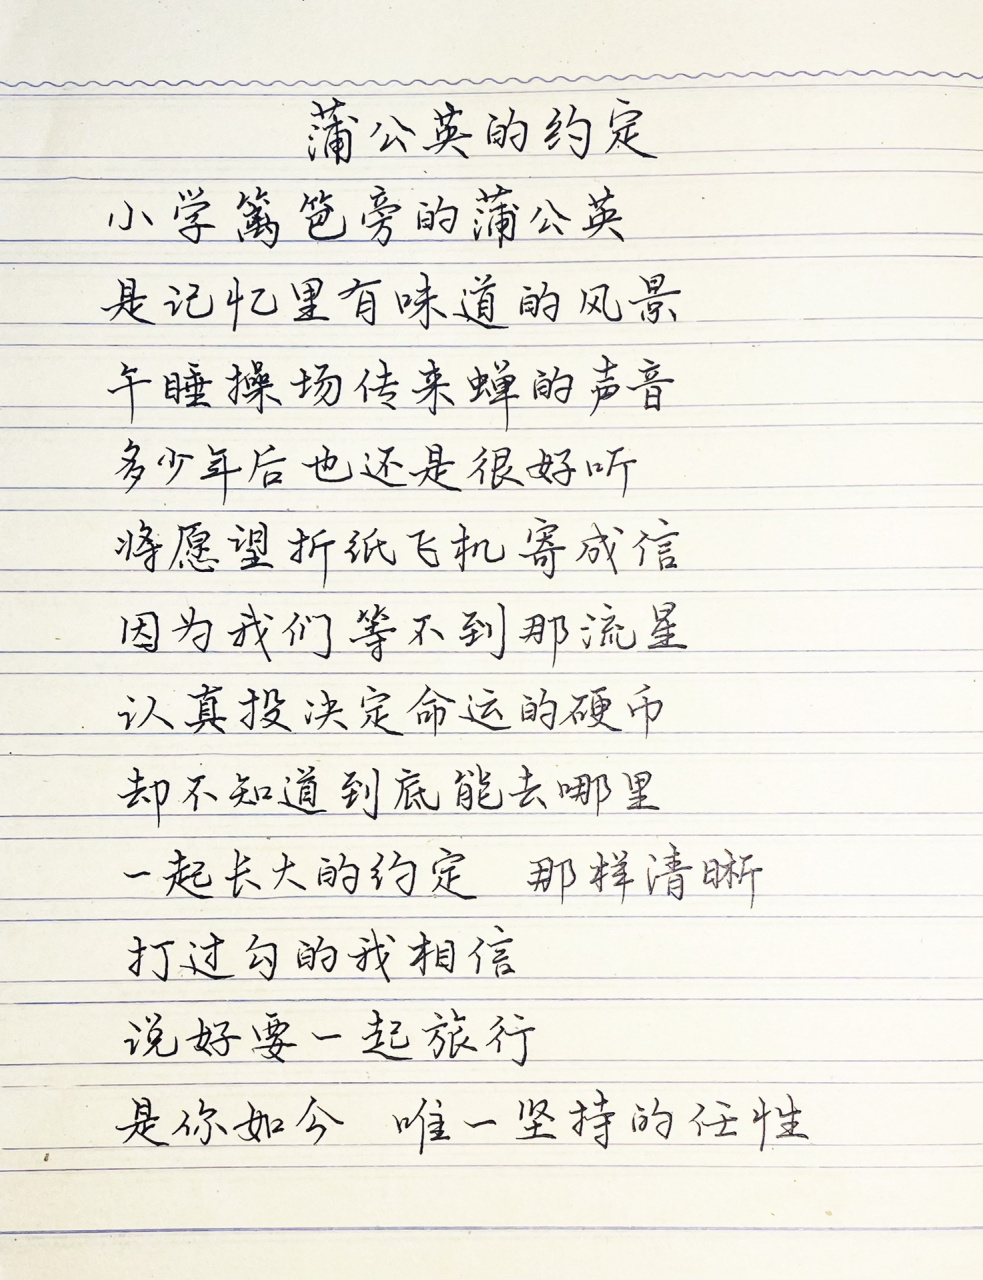 蒲公英的约定
小学篱笆旁的蒲公英
是记忆里有味道的风景
午睡操场传来蝉的声音
多少年后也还是很好听
将愿望折纸飞机寄成信
因为我们等不到那流星
认真投决定命运的硬币
却不知道到底能去哪里
一起长大的约定 那样清晰
打过勾的我相信
说好要一起旅行
是你如今 唯一坚持的任性